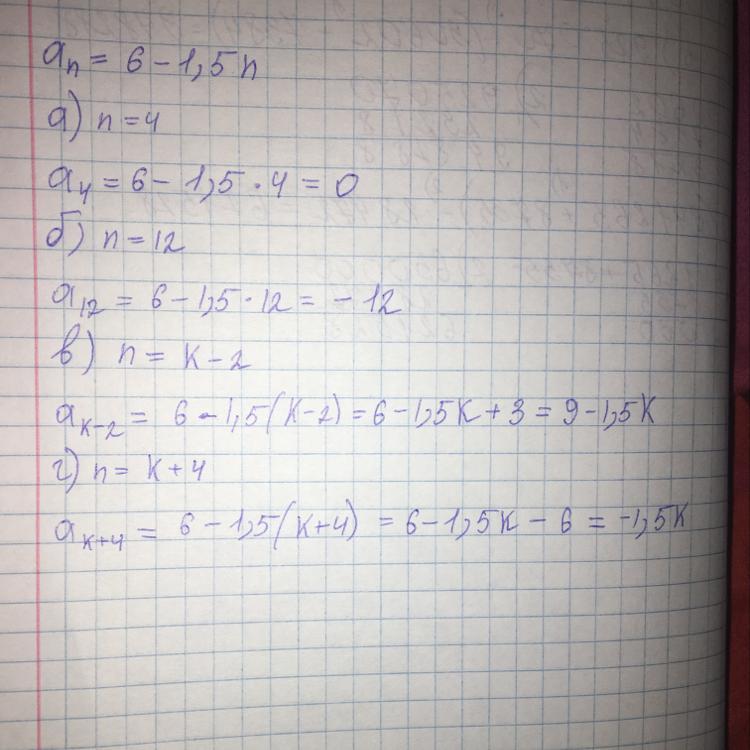 aₙ = 6 - 1,5n
а) n = 4
a₄ = 6 - 1,5 · 4 = 0
б) n = 12
a₁₂ = 6 - 1,5 · 12 = - 12
в) n = k - 2
aₖ₋₂ = 6 - 1,5(k-2) = 6 - 1,5k + 3 = 9 - 1,5k
г) n = k + 4
aₖ₊₄ = 6 - 1,5(k+4) = 6 - 1,5k - 6 = -1,5k